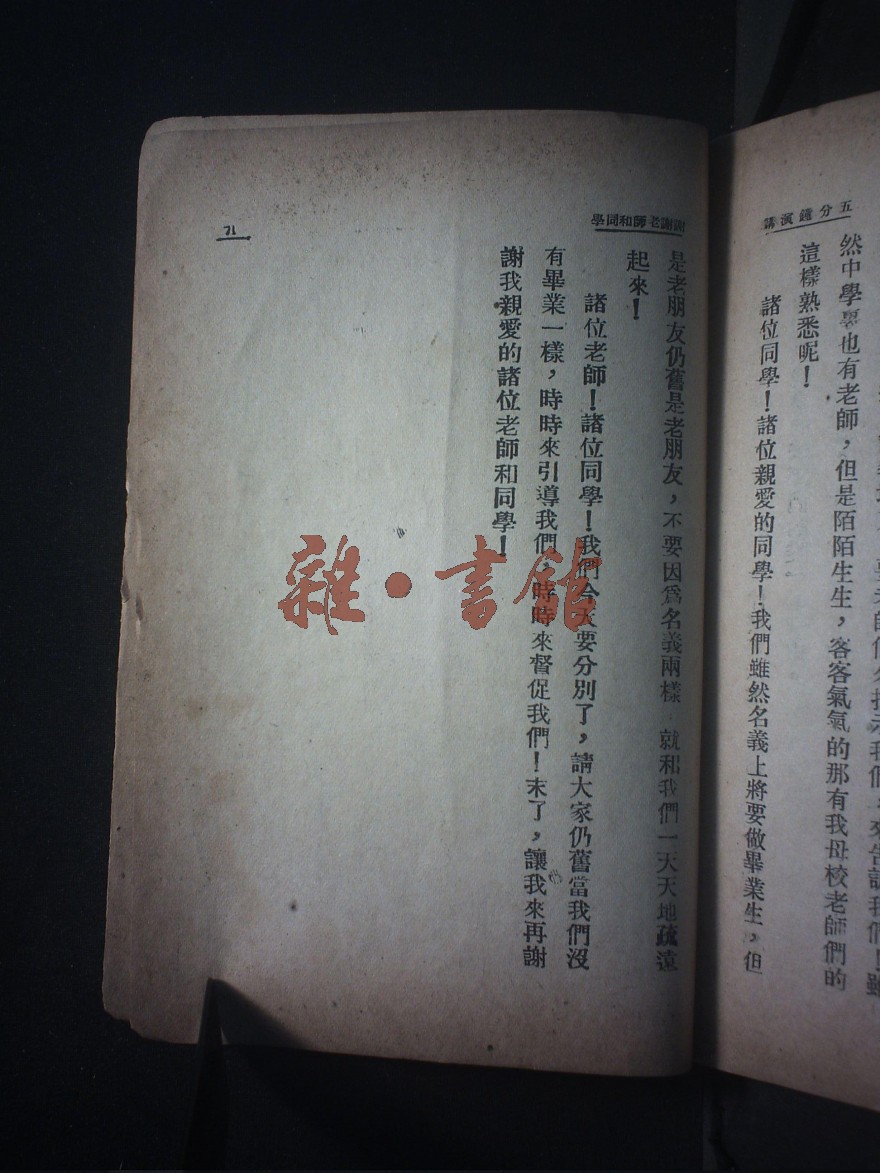 五分鐘演講
要老師們多指示我們，來告訴我們！雖
然中學裏也有老師，但是陌陌生生，客客氣氣的那有我母校老師們的
這樣熟悉呢！
諸位同學！諸位親愛的同學！我們雖然名義上將要做畢業生，但
謝謝老師和同學
是老朋友仍舊是老朋友，不要因爲名義兩樣 就和我們一天天地疏遠
起來！
諸位老師！諸位同學！我們今天要分別了，請大家仍舊當我們沒
有畢業一樣，時時來引導我們，時時來督促我們！末了，讓我來再謝
謝我親愛的諸位老師和同學！
71
雜·書館